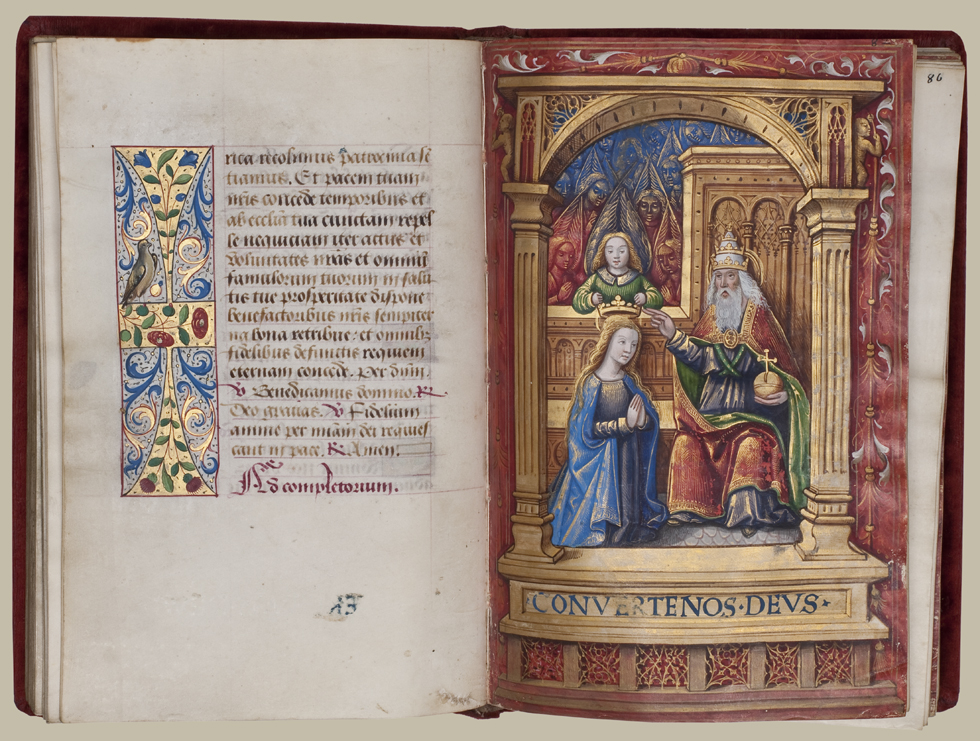 rica recolimus patrocinia se
tiamus. Et pacem tuam
nris concede temporibus et
ab ecclia tua cunctam repel
le nequiciam iter actus et
voluntates nras et omniu
famulorum tuorum in salu
tis tue prosperitate dispone
benefactoribus nris sempiter
na bona retribue: et omnibz
fidelibus defunctis requiem
eternam concede. Per dnm.
v Benedicamus domino. R
Deo gratias. v Fidelium
anime per miam dei requies
cant in pace. R Amen.
Ad completorium.
CONVERTE NOS · DEVS
86